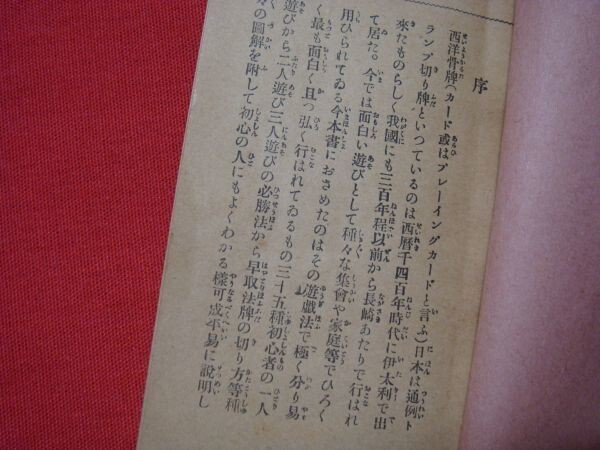 序
西洋骨牌(カード或はプレーイングカードと言ふ)日本は通例ト
ランプ切り牌といつているのは西暦千四百年時代に伊太利で出
來たものらしく我國にも三百年程以前から長崎あたりで行はれ
て居た。今では面白い遊びとして種々な集會や家庭等でひろく
用ひられてゐる今本書におさめたのはその遊戯法で極く分り易
く最も面白く且つ弘く行はれてゐるもの三十五種初心者の一人
遊びから二人遊び三人遊びの必勝法から早取法牌の切り方等種
々の圖解を附して初心の人にもよくわかる樣可成平易に說明し